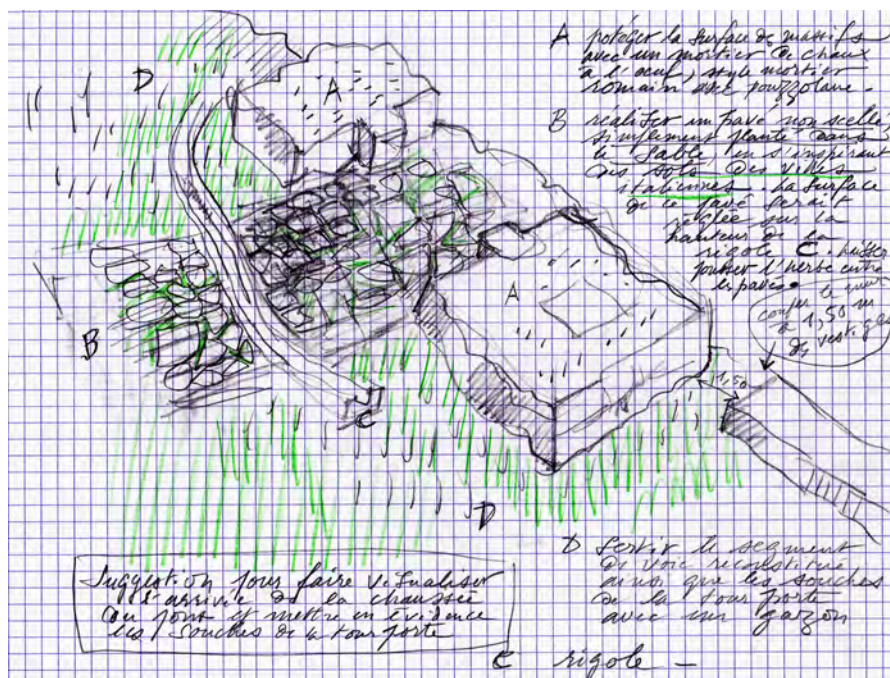 A protéger la surface de massifs
avec un mortier de chaux
à l'œuf, style mortier
romain avec pouzzolane -
B réaliser un pavé non scellé
simplement planté dans
le sable, en s'inspirant
des sols des villes
italiennes. La surface
de ce pavé serait
réglée sur la
hauteur de la
rigole C. laisser
pousser l'herbe entre
les pavés.
couper le muret
à 1,50 m
des vestiges
1,50
A
A
B
C
D
D
D Sertir le segment
de voie reconstitué
ainsi que les souches
de la tour porte
avec un gazon
C rigole -
Suggestion pour faire visualiser
l'arrivée de la chaussée
au pont et mettre en évidence
les souches de la tour porte